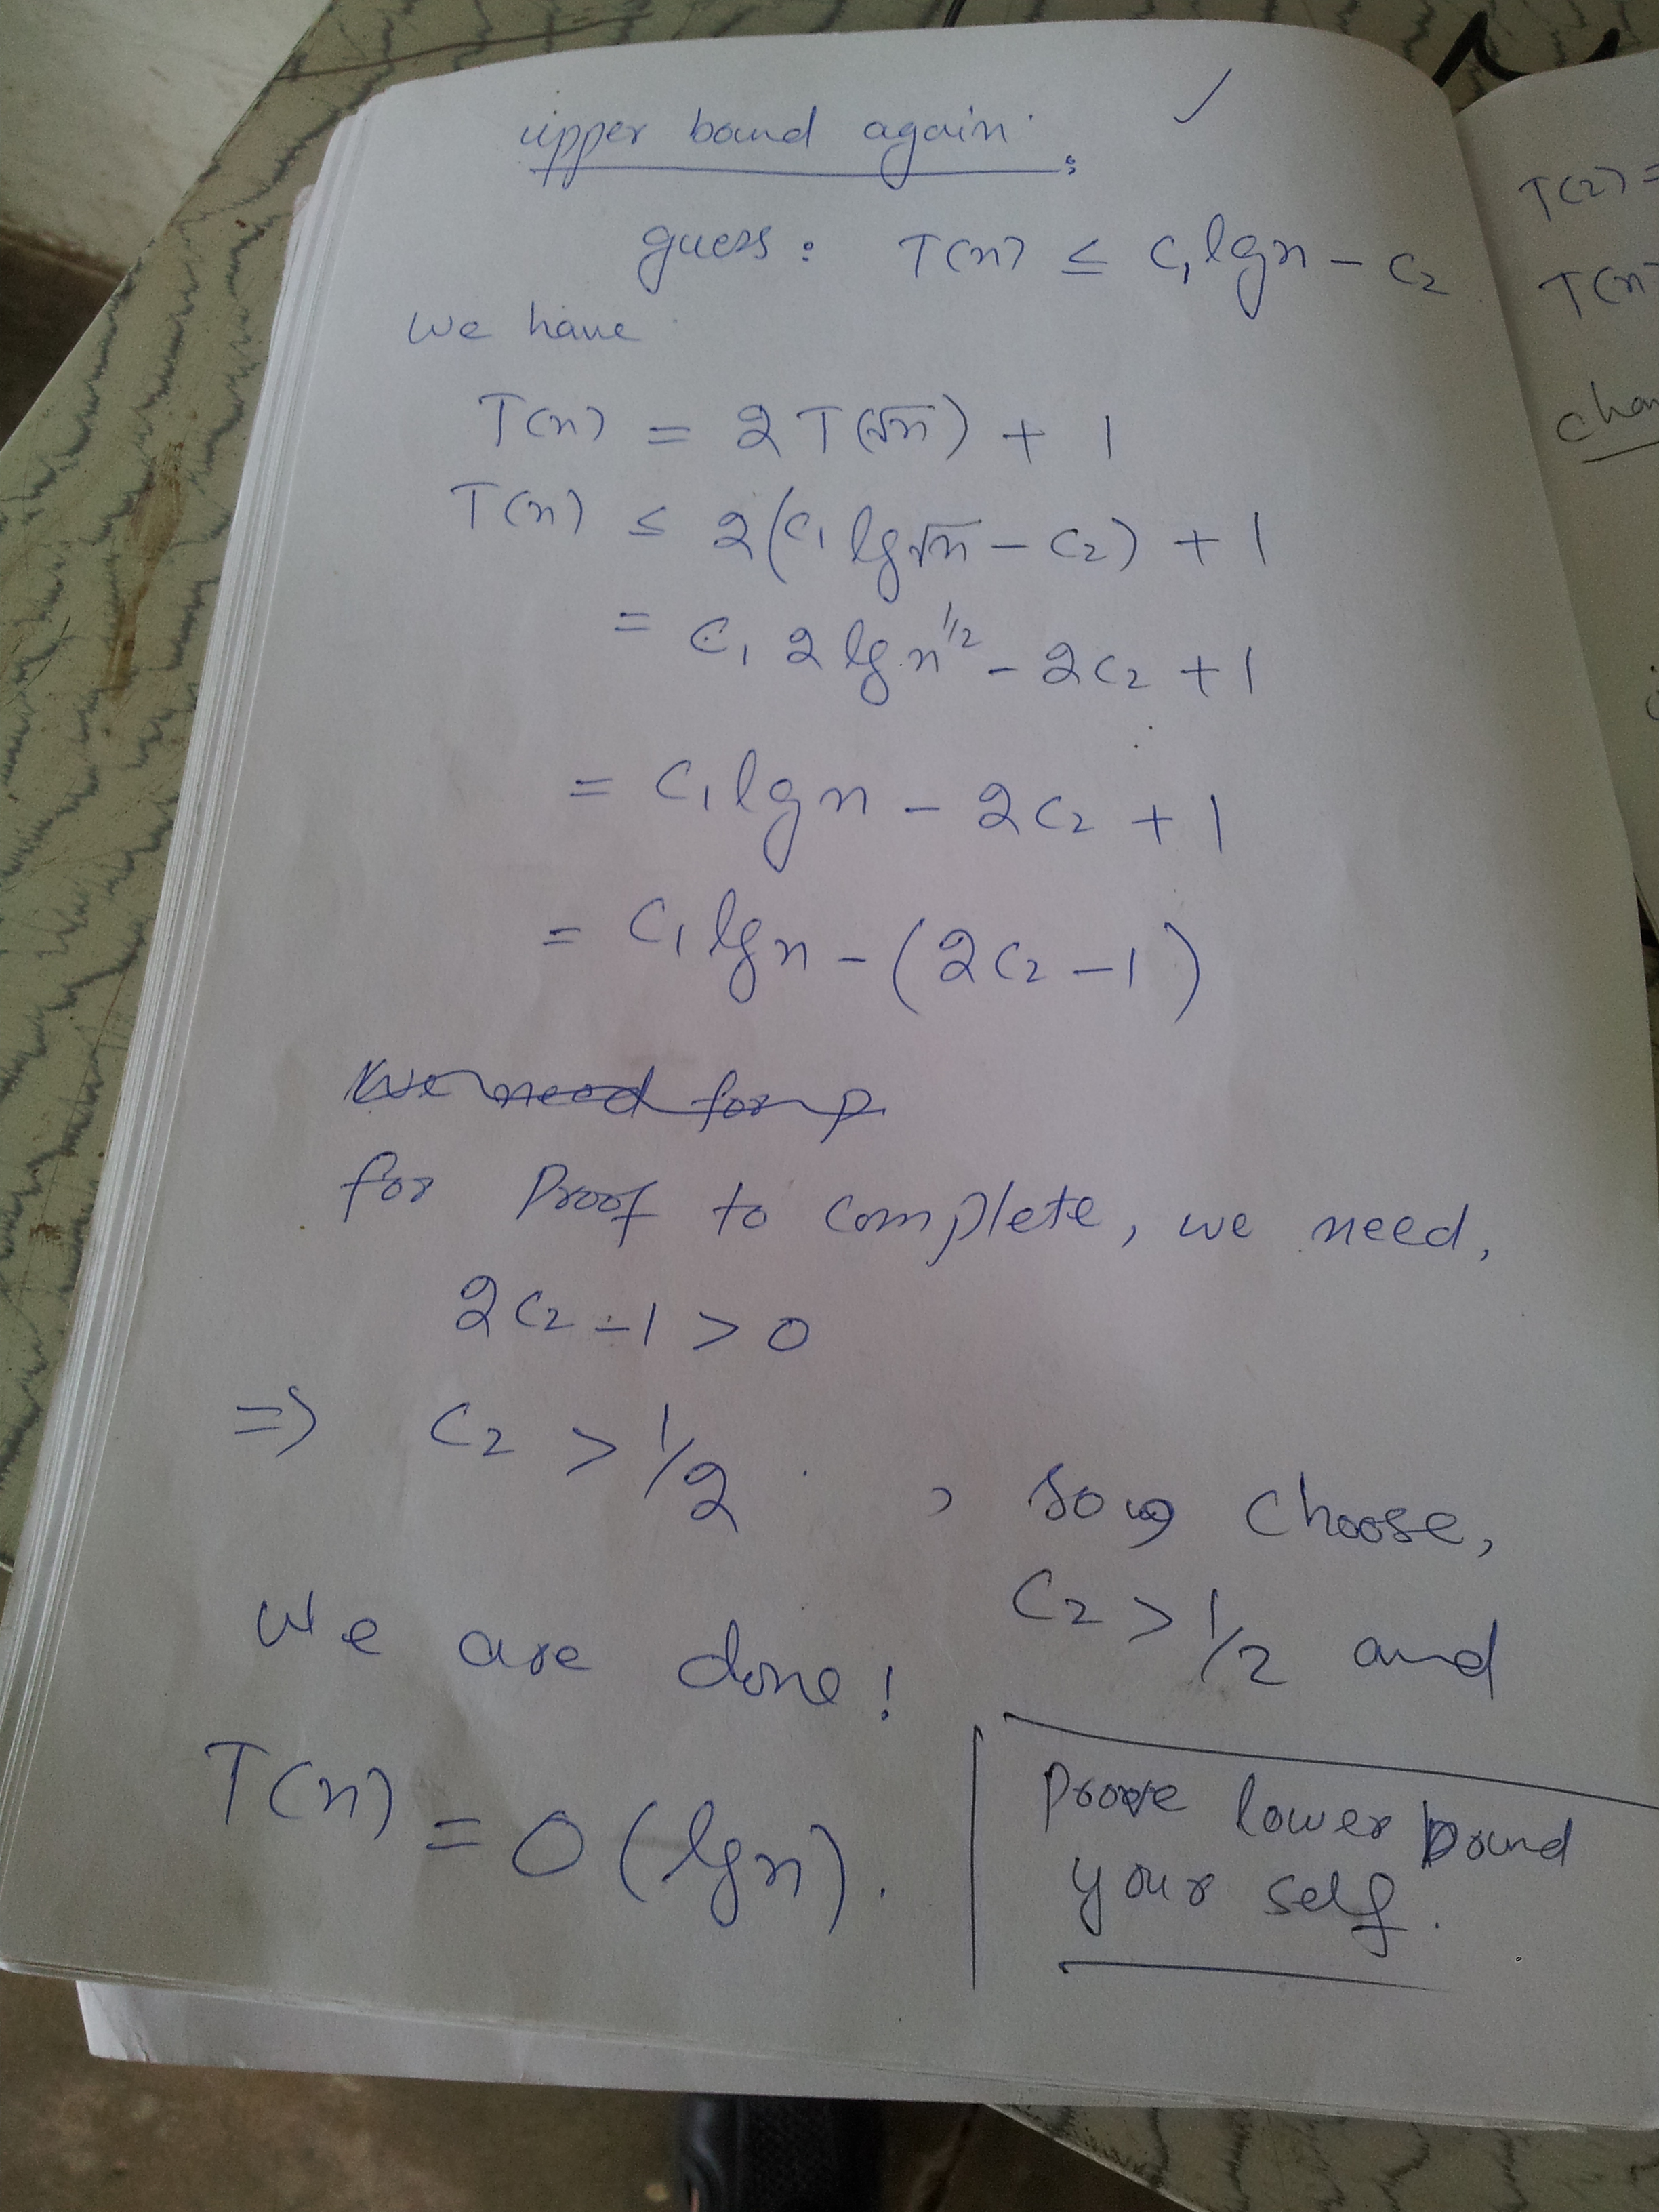 upper bound again :
guess : T(n) ≤ c₁lgn - c₂
we have
T(n) = 2T(√n) + 1
T(n) ≤ 2(c₁ lg√n - c₂) + 1
= c₁ 2 lg n^1/2 - 2c₂ + 1
= c₁ lg n - 2c₂ + 1
= c₁ lgn - (2c₂ - 1)
for proof to complete, we need,
2c₂ - 1 > 0
=> c₂ > 1/2 , so choose,
c₂ > 1/2 and
we are done!
T(n) = O(lgn).
Prove lower bound
your self.
T(n) =
T(n